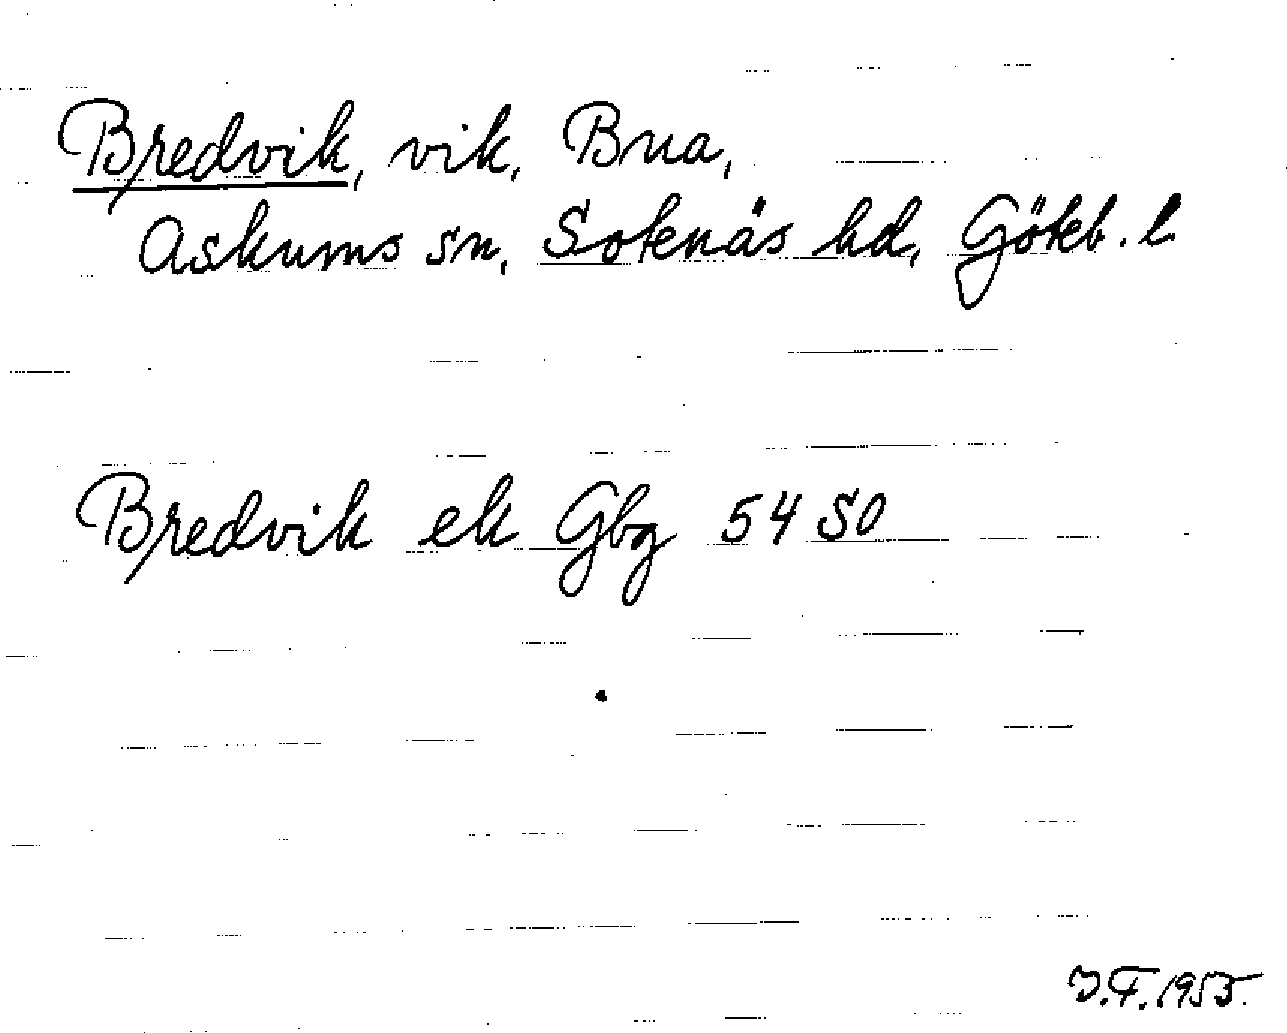 Bredvik, vik, Bua,
Askums sn, Sotenäs hd, Göteb. l.
Bredvik ek Gbg 54 SO
J.F. 1955.